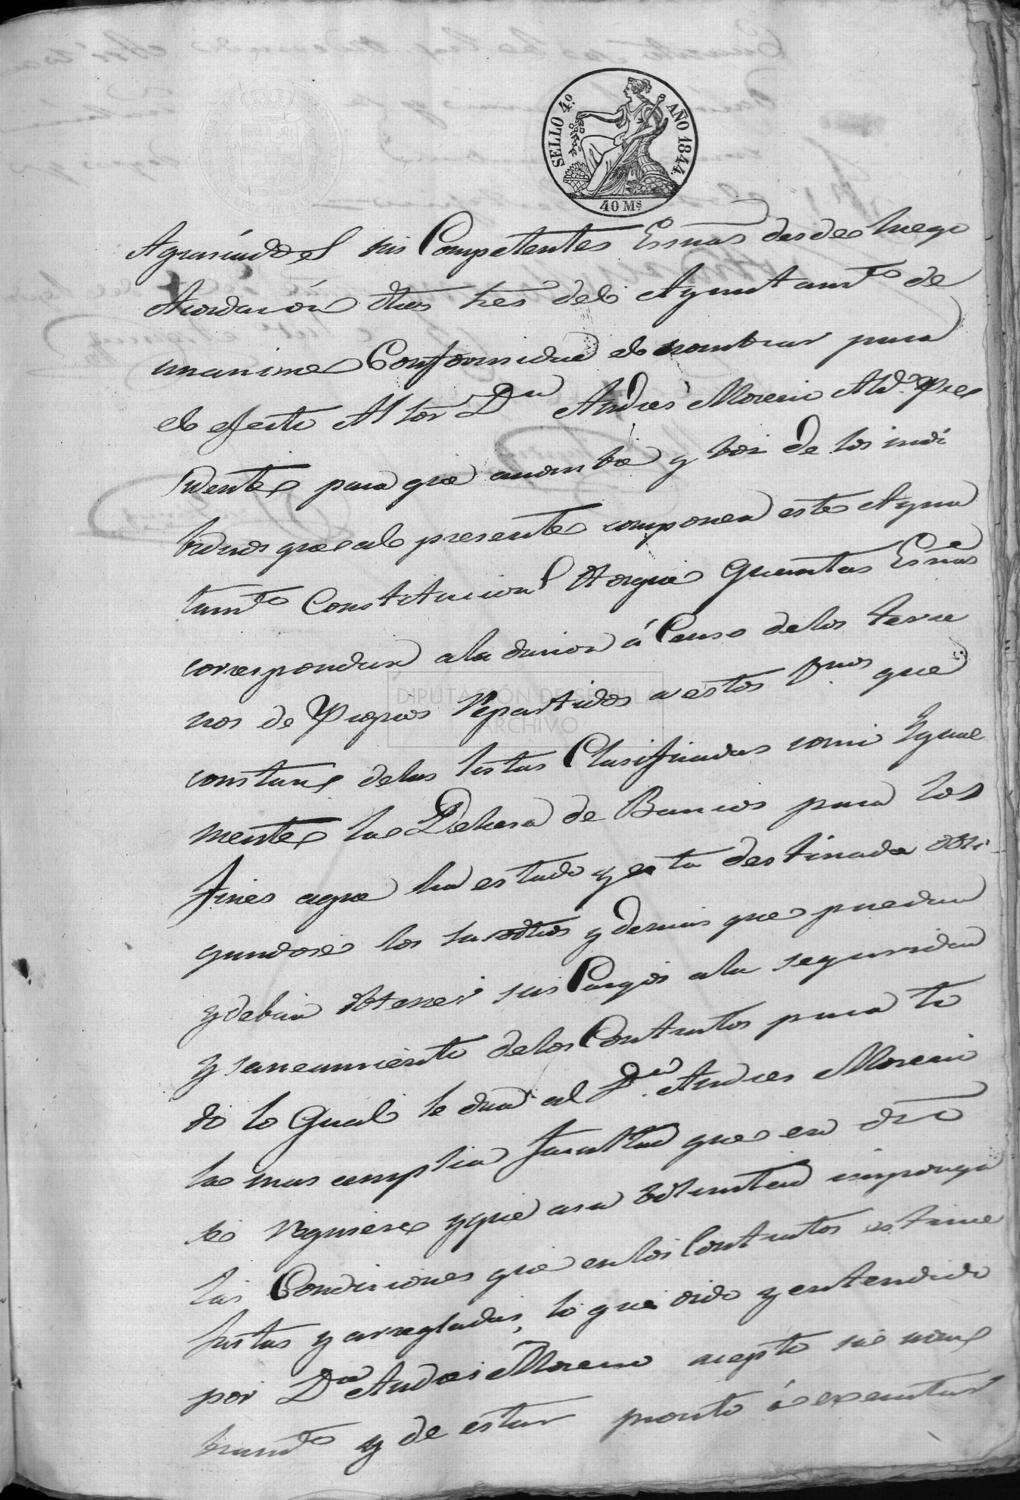 SELLO 4.º AÑO 1844.
40 Mˢ
sus Competentes Esnas desde luego
Acordaron dhos Sres del Ayuntamto de
unanime Conformidad el nombrar para
el efecto Al Sor Dn Andres Moreno Ald.e Presi
dente para que a nombre y voz de los indi
biduos que al presente componen este Ayun
tamto Constitucional Otorgue Quantas Esnas
correspondan ala dacion á Censo delos terre
nos de Propios Repartidos a estos Vnos que
constan delas listas Clasificadas como Igual
mente la Dehesa de Bancos para los
fines aque ha estado y esta destinada obli
gandose los susodhos y demas que puedan
y deban obtener sus Cargos ala seguridad
y saneamiento delos Contratos para to
do lo Qual le dan al Dn Andres Moreno
la mas amplia facultad que en dro
se requiere y que asu boluntad imponga
las Condiciones que en los Contratos estime
Justas y arregladas, lo que oido y entendido
por Dn Andres Moreno acepto su nom
bramto y de estar pronto á executar
DIPUTACIÓN DE SEVILLA
ARCHIVO